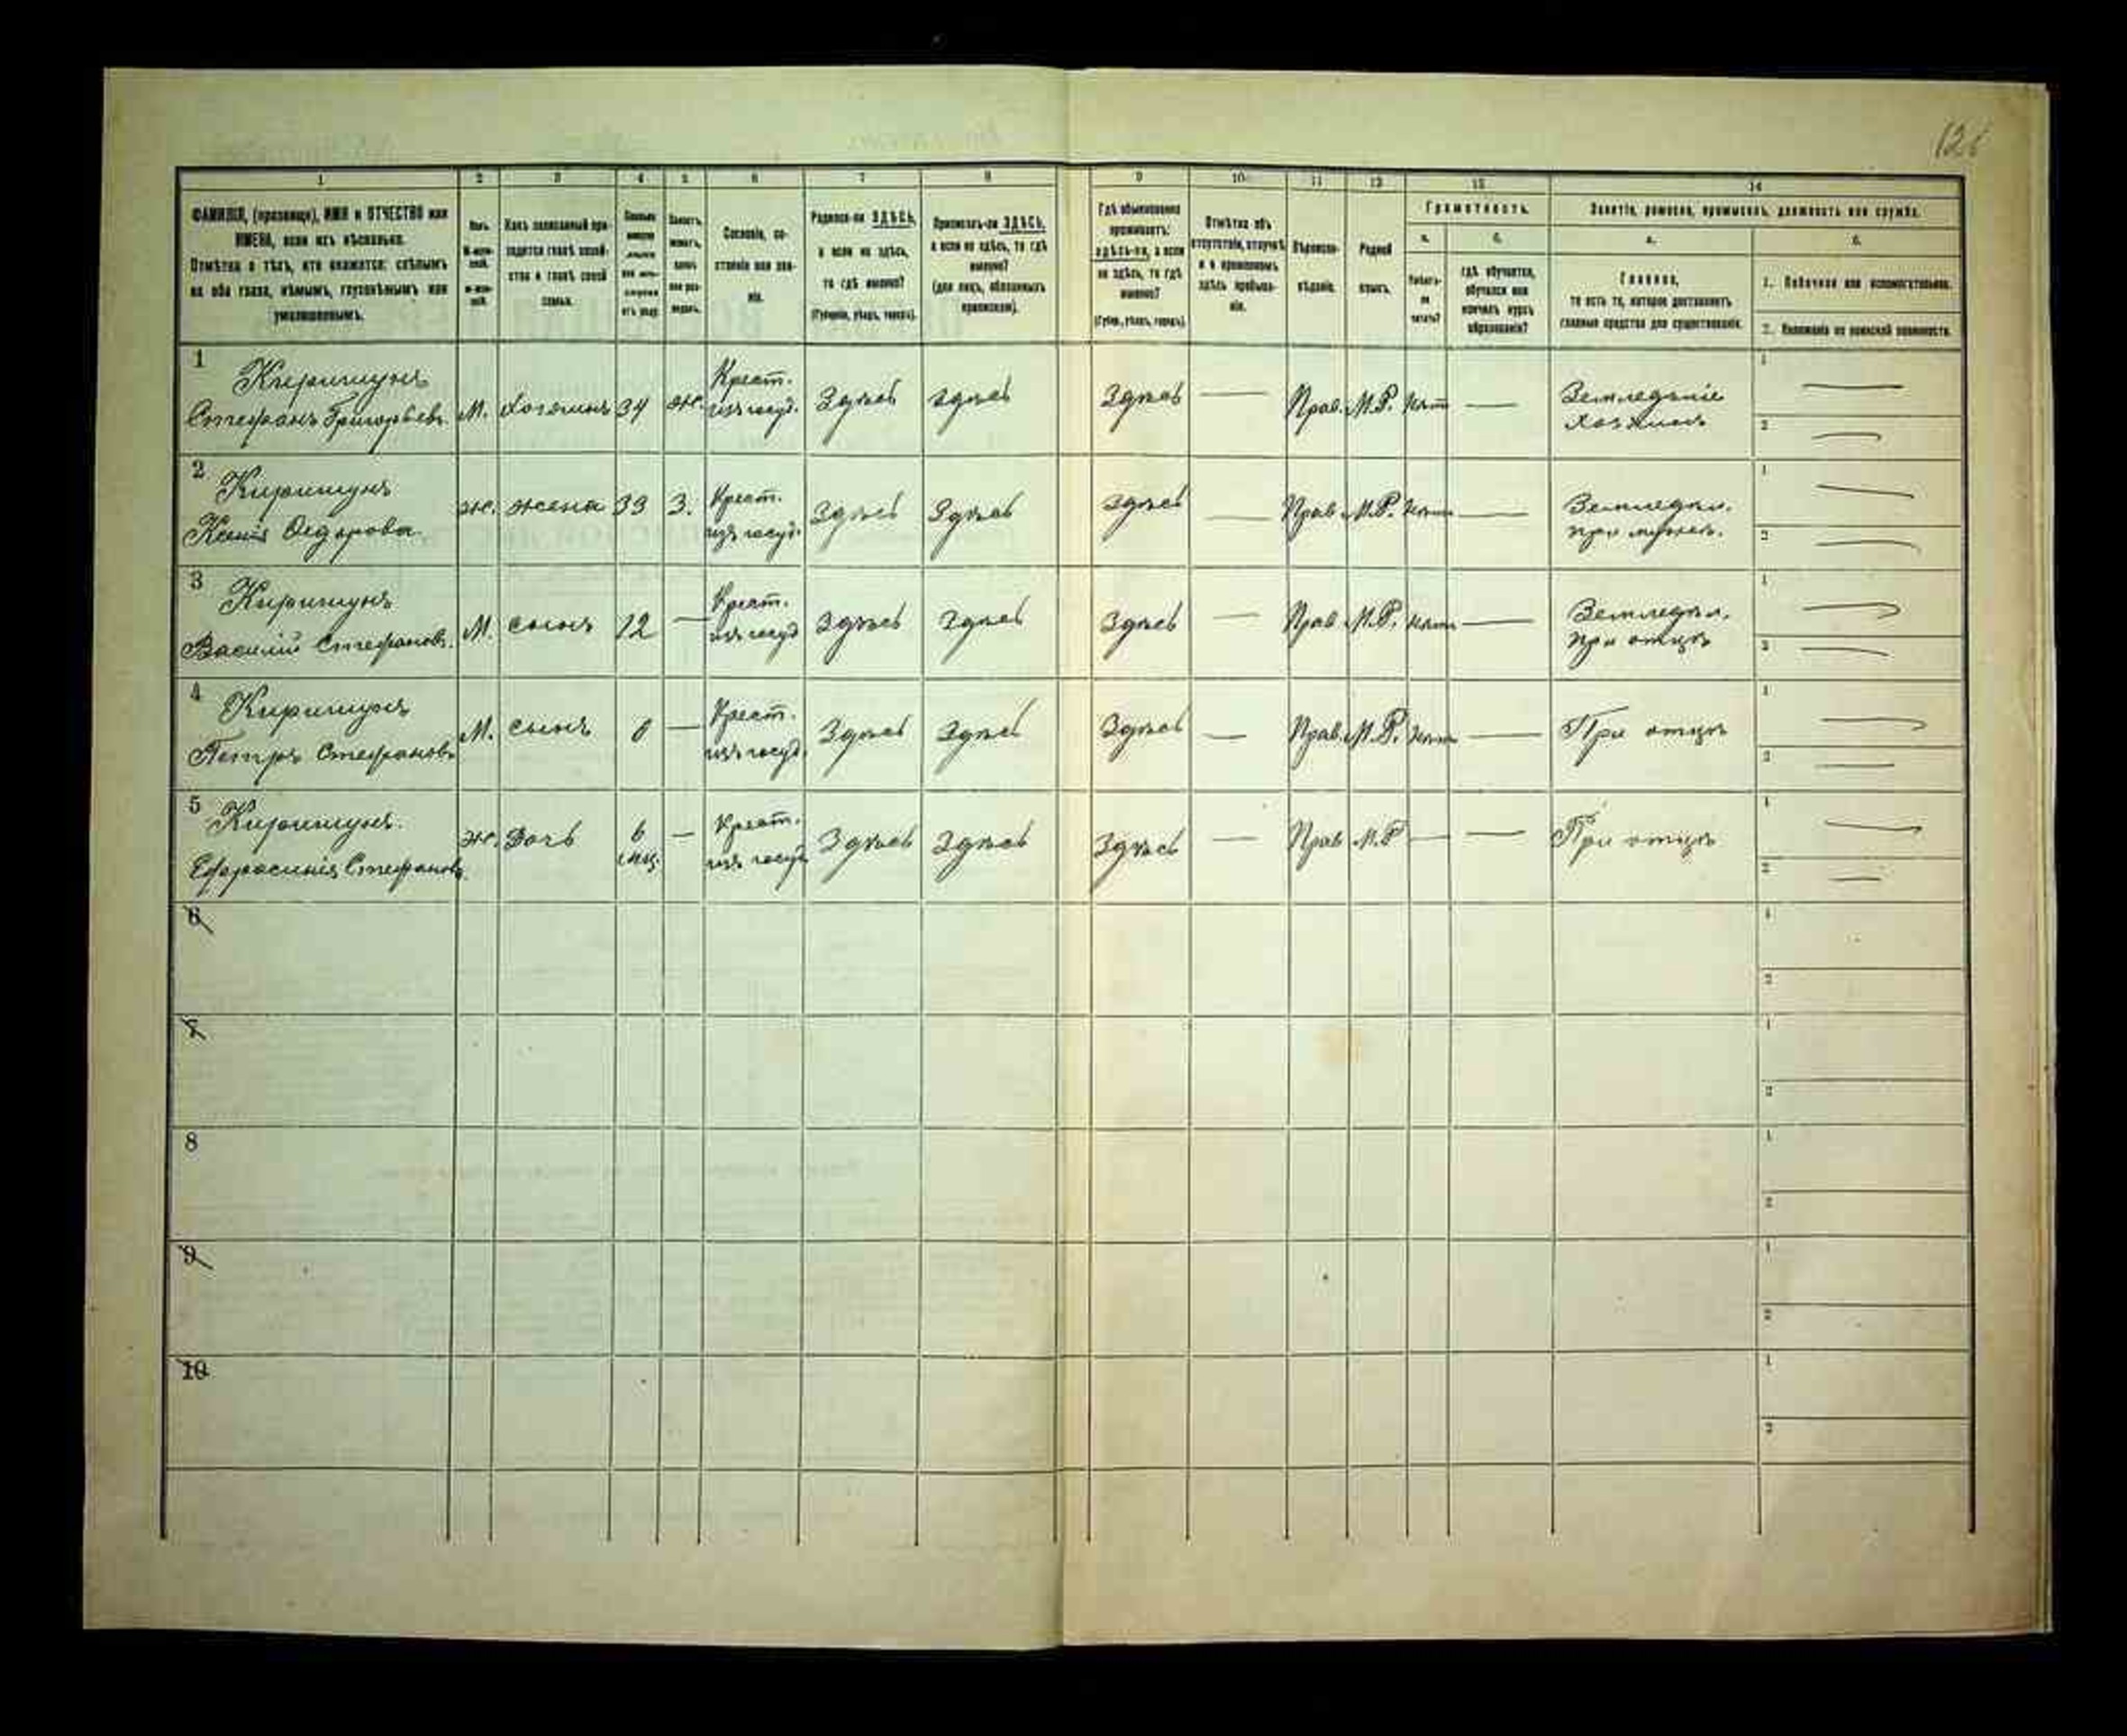 126
1 2 3 4 5 6 7 8 9 10 11 12 13 14
ФАМИЛІЯ, (прозвище), ИМЯ и ОТЧЕСТВО или
ИМЕНА, если ихъ нѣсколько.
Отмѣтка о тѣхъ, кто окажется: слѣпымъ
на оба глаза, нѣмымъ, глухонѣмымъ или
умалишеннымъ.
Полъ.
М-муж-
ской.
ж-жен-
скій.
Какъ записанный при-
ходится главѣ хозяй-
ства и главѣ своей
семьи.
Сословіе, со-
стояніе или зва-
ніе.
Родился-ли ЗДѢСЬ,
а если не здѣсь,
то гдѣ именно?
(Губернія, уѣздъ, городъ).
Приписанъ-ли ЗДѢСЬ,
а если не здѣсь, то гдѣ
именно?
(для лицъ, обязанныхъ
припискою).
Гдѣ обыкновенно
проживаетъ:
здѣсь-ли, а если
не здѣсь, то гдѣ
именно?
(Губер., уѣздъ, городъ).
Отмѣтка объ
отсутствіи, отлучкѣ
и о временномъ
здѣсь пребыва-
ніи.
Вѣроиспо-
вѣданіе.
Родной
языкъ.
Грамотность.
а.
Умѣетъ-
ли
читать?
б.
гдѣ обучается,
обучался или
кончилъ курсъ
образованія?
Занятіе, ремесло, промыселъ, должность или служба.
а.
Главное,
то есть то, которое доставляетъ
главныя средства для существованія.
б.
1. Побочное или вспомогательное.
2. Положеніе по воинской повинности.
1 Киришунъ
Стефанъ Григорьевъ М. Хозяинъ 34 ж. Крест. изъ госуд. Здѣсь Здѣсь Здѣсь — Прав. М.Р. нѣт — Земледѣліе хозяинъ 1 — 2 —
2 Киришунъ
Ксенія Ѳедорова ж. жена 33 З. Крест. изъ госуд. Здѣсь Здѣсь Здѣсь — Прав М.Р. нѣт — Земледѣл. при мужѣ. 1 — 2 —
3 Киришунъ
Василій Стефановъ М. сынъ 12 — Крест. изъ госуд Здѣсь Здѣсь Здѣсь — Прав М.Р. нѣт — Земледѣл. при отцѣ 1 — 2 —
4 Киришунъ
Петръ Стефановъ М. сынъ — Крест. изъ госуд. Здѣсь Здѣсь Здѣсь — Прав. М.Р. нѣт — При отцѣ 1 — 2 —
5 Киришунъ
Ефросинія Стефанов. ж. Дочь 6 мц. — Крест. изъ госуд Здѣсь Здѣсь Здѣсь — Прав М.Р — — При отцѣ 1 — 2 —
6 1 2
7 1 2
8 1 2
9 1 2
10 1 2